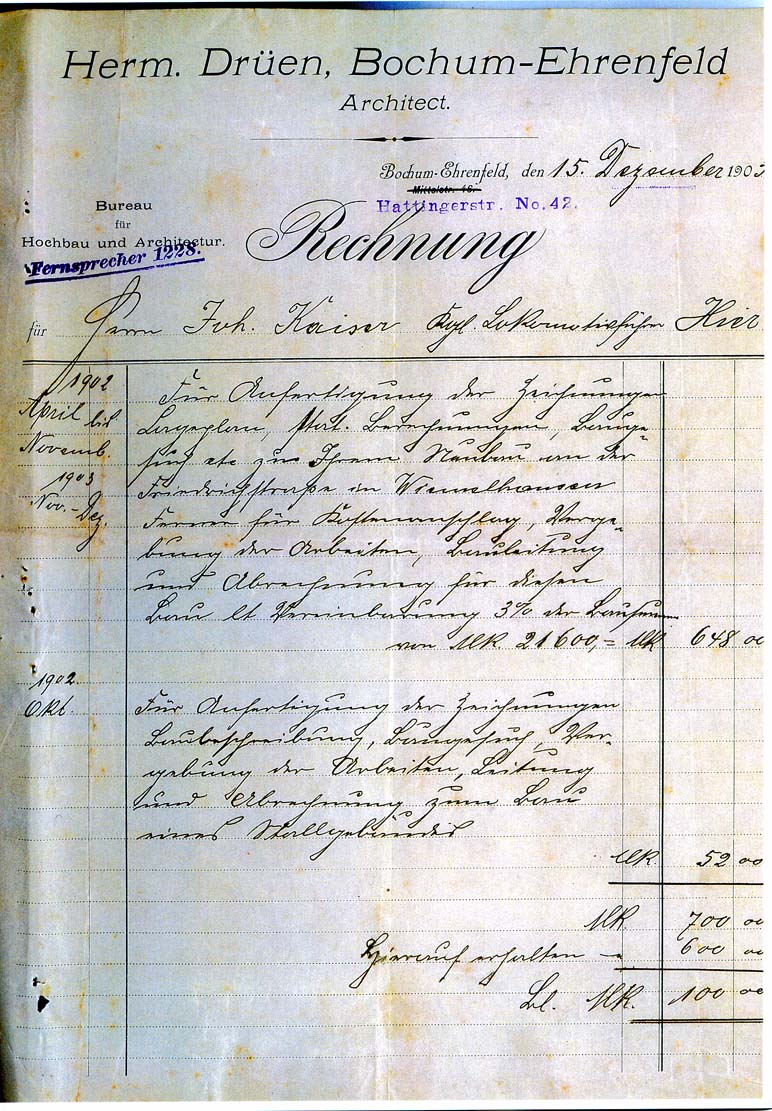 Herm. Drüen, Bochum-Ehrenfeld
Architect.
Bochum-Ehrenfeld, den 15. Dezember 1903
Mittelstr. 16.
Hattingerstr. No. 42.
Bureau
für
Hochbau und Architectur.
Fernsprecher 1228.
Rechnung
für Herrn Joh. Kaiser Kgl. Lokomotivführer Hier
1902
April bis
Novemb.
1903
Nov.-Dez.
Für Anfertigung der Zeichnungen
Lageplan, stat. Berechnungen, Bauge-
such etc zu Ihrem Neubau an der
Friedrichstraße in Wiemelhausen
Ferner für Kostenanschlag, Verge-
bung der Arbeiten, Bauleitung
und Abrechnung für diesen
Bau lt Vereinbarung 3% der Bausumme
von Mk. 21600,= Mk 648 00
1902.
Okt.
Für Anfertigung der Zeichnungen
Baubeschreibung, Baugesuch, Ver-
gebung der Arbeiten, Leitung
und Abrechnung zum Bau
eines Stallgebäudes
Mk 52 00
Mk 700 00
Hierauf erhalten 600 00
Bl. Mk. 100 00